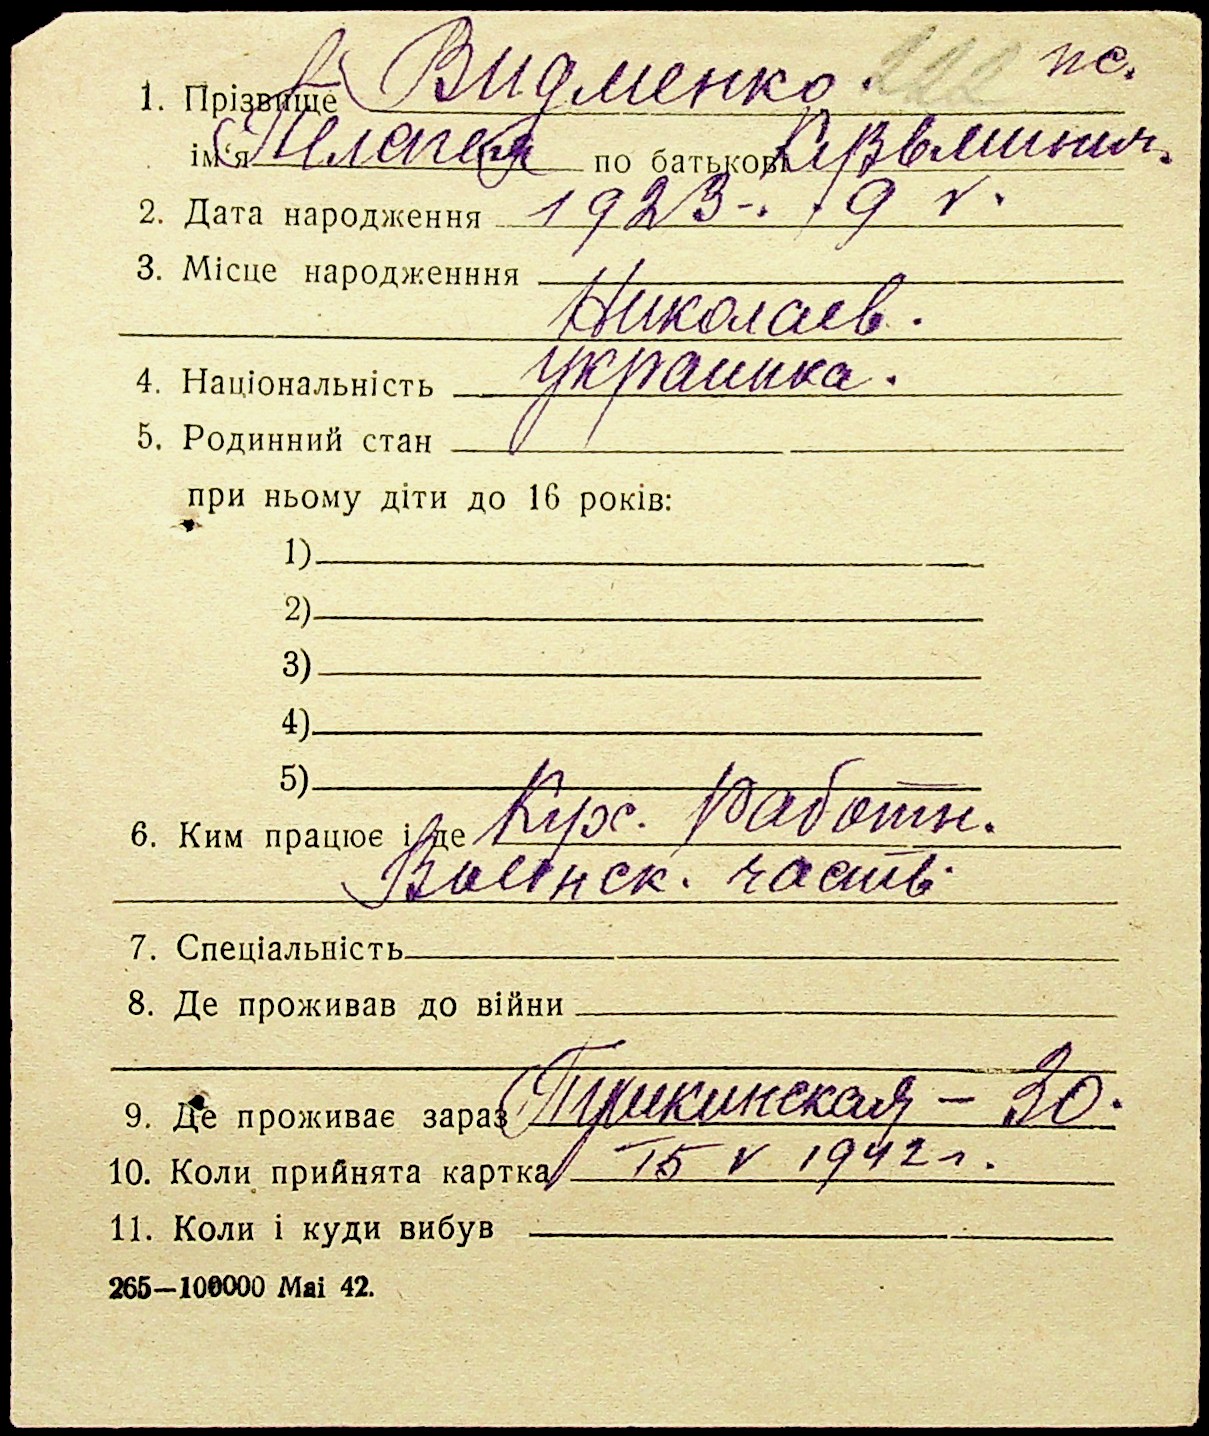 1. Прізвище Видменко. 222 пс.
ім‘я Пелагея по батькові
2. Дата народження 1923-. 19 V.
3. Місце народженння
Николаев.
4. Національність украинка.
5. Родинний стан
при ньому діти до 16 років:
1)
2)
3)
4)
5)
6. Ким працює і де Кух. Работн.
Воинск. часть
7. Спеціальність
8. Де проживав до війни
9. Де проживає зараз Пушкинская – 30.
10. Коли прийнята картка 15 V 1942 г.
11. Коли і куди вибув
265—100000 Mai 42.